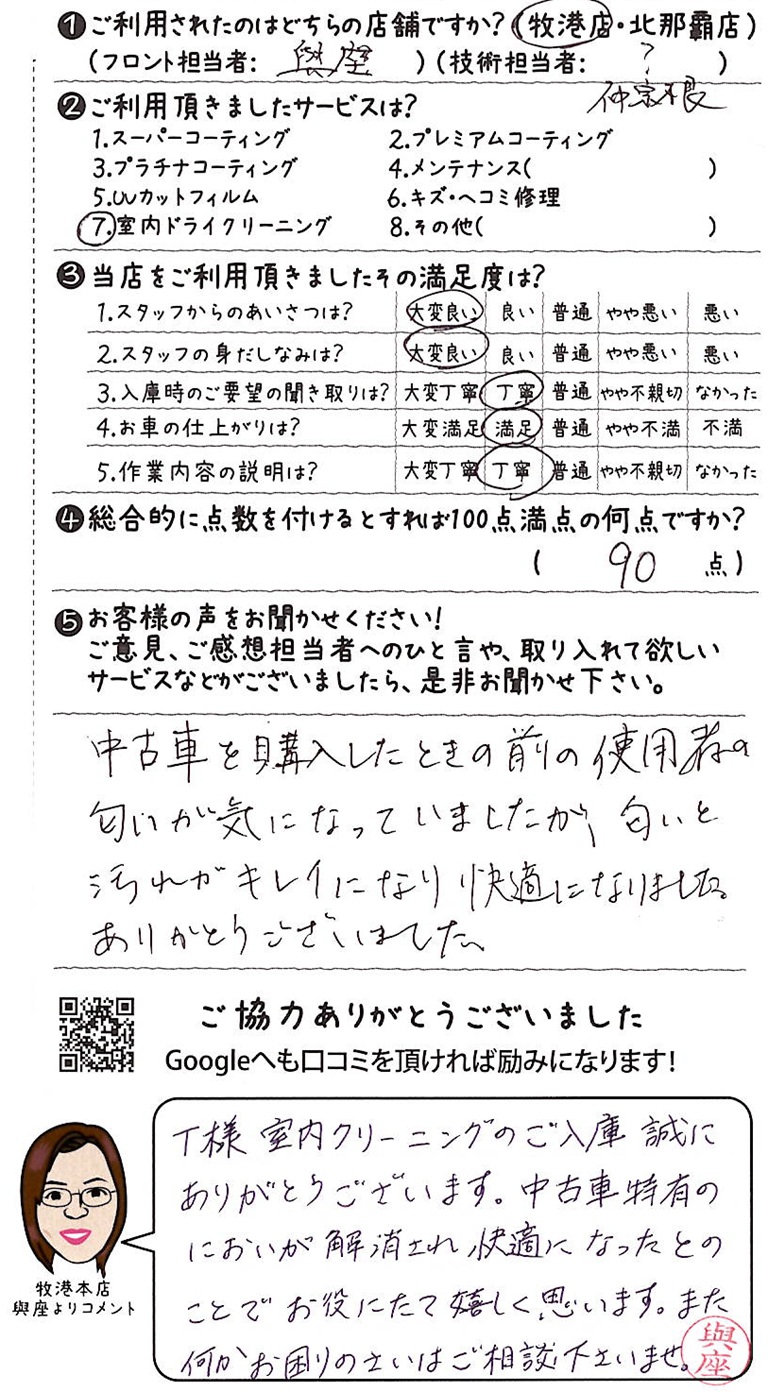 ❶ご利用されたのはどちらの店舗ですか?(牧港店・北那覇店)
(フロント担当者: 與座 )(技術担当者: ? )
仲宗根
❷ご利用頂きましたサービスは?
1.スーパーコーティング 2.プレミアムコーティング
3.プラチナコーティング 4.メンテナンス( )
5.UVカットフィルム 6.キズ・ヘコミ修理
7.室内ドライクリーニング 8.その他( )
❸当店をご利用頂きましたその満足度は?
1.スタッフからのあいさつは? 大変良い 良い 普通 やや悪い 悪い
2.スタッフの身だしなみは? 大変良い 良い 普通 やや悪い 悪い
3.入庫時のご要望の聞き取りは? 大変丁寧 丁寧 普通 やや不親切 なかった
4.お車の仕上がりは? 大変満足 満足 普通 やや不満 不満
5.作業内容の説明は? 大変丁寧 丁寧 普通 やや不親切 なかった
❹総合的に点数を付けるとすれば100点満点の何点ですか?
( 90 点)
❺お客様の声をお聞かせください!
ご意見、ご感想担当者へのひと言や、取り入れて欲しい
サービスなどがございましたら、是非お聞かせ下さい。
中古車を購入したときの前の使用者の
匂いが気になっていましたが、匂いと
汚れがキレイになり快適になりました。
ありがとうございました。
ご協力ありがとうございました
Googleへも口コミを頂ければ励みになります!
T様 室内クリーニングのご入庫 誠に
ありがとうございます。中古車特有の
においが解消され、快適になったとの
ことでお役にたて嬉しく思います。また
何かお困りのさいはご相談下さいませ。
與座
牧港本店
與座よりコメント